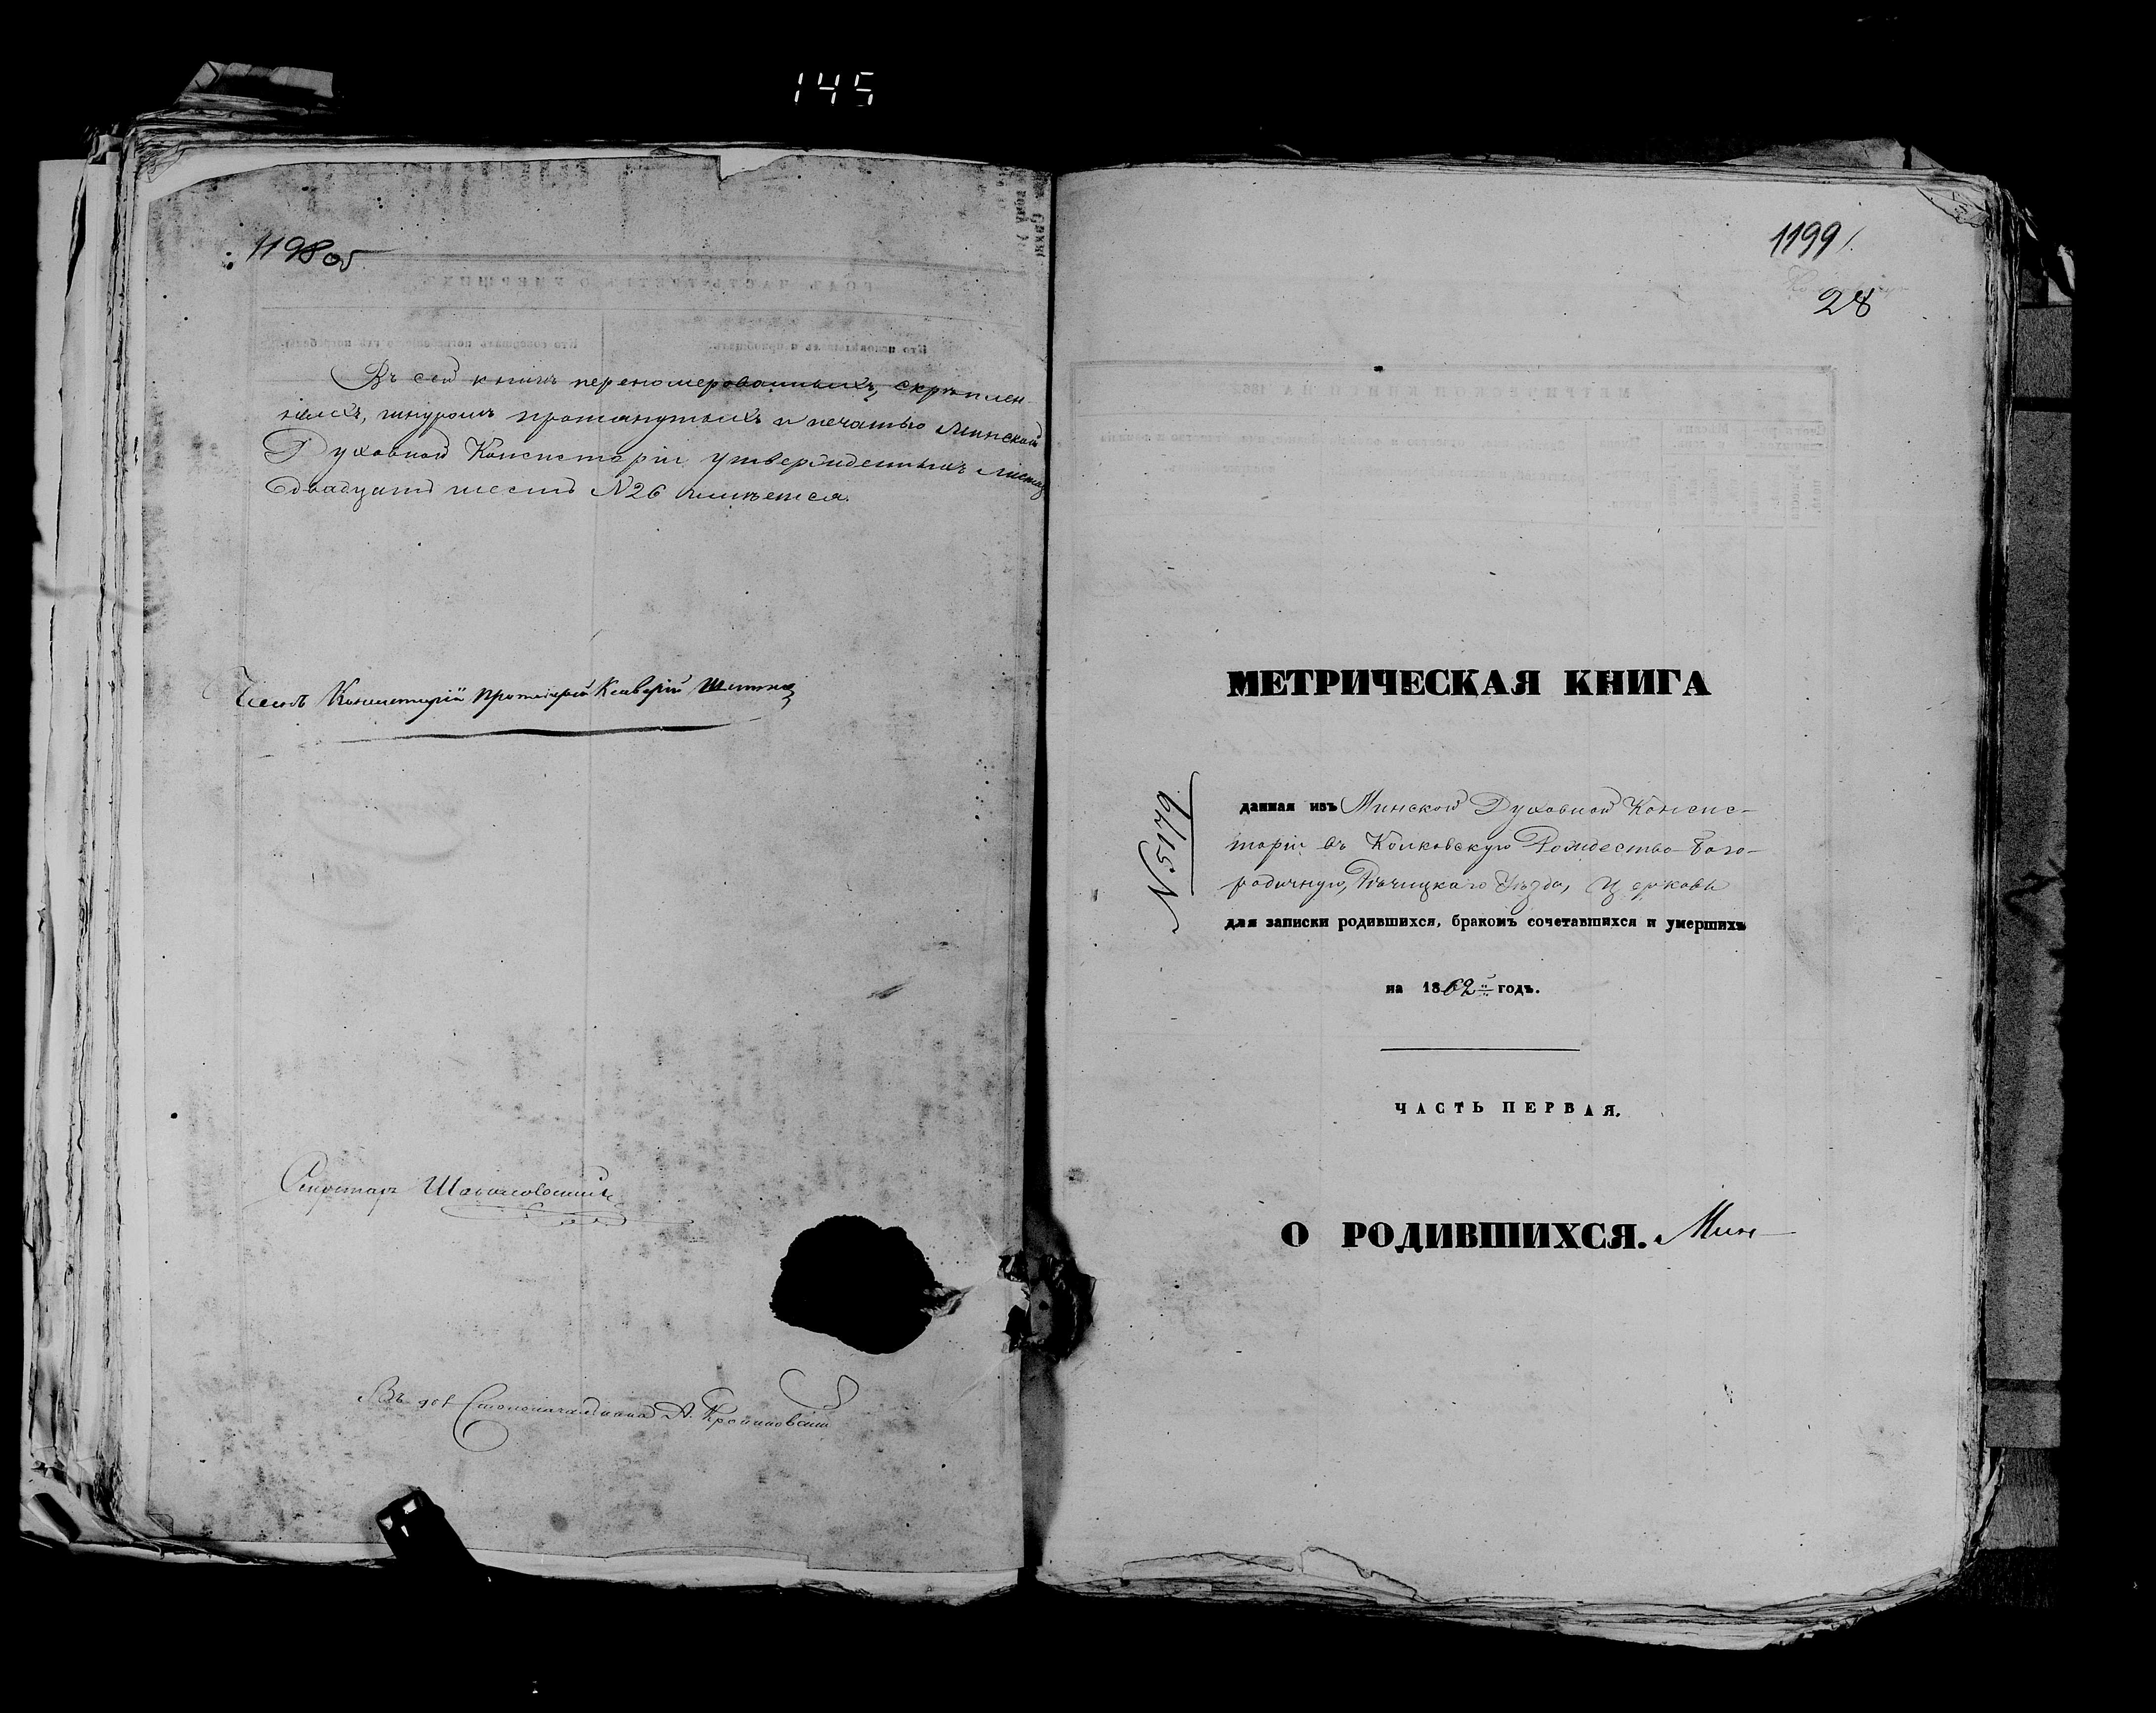 145
1198 об
Въ сей книгѣ переномерованныхъ, скрѣплен
ныхъ, шнуромъ протянутыхъ и печатью Минской
Духовной Консисторіи утвержденныхъ листовъ
двадцать шесть N26 имѣется.
Членъ Консисторіи Протоіерей Ксаверій
Секретарь
Въ дол Столоначальника А.
1199
28
МЕТРИЧЕСКАЯ КНИГА
N 5179
данная изъ Минской Духовной Консис-
торіи въ Колковскую Рождество-Бого-
родичную, Рѣчицкаго Уѣзда, Церковь
для записки родившихся, бракомъ сочетавшихся и умершихъ
на 1862й годъ.
ЧАСТЬ ПЕРВАЯ.
О РОДИВШИХСЯ. Мин-